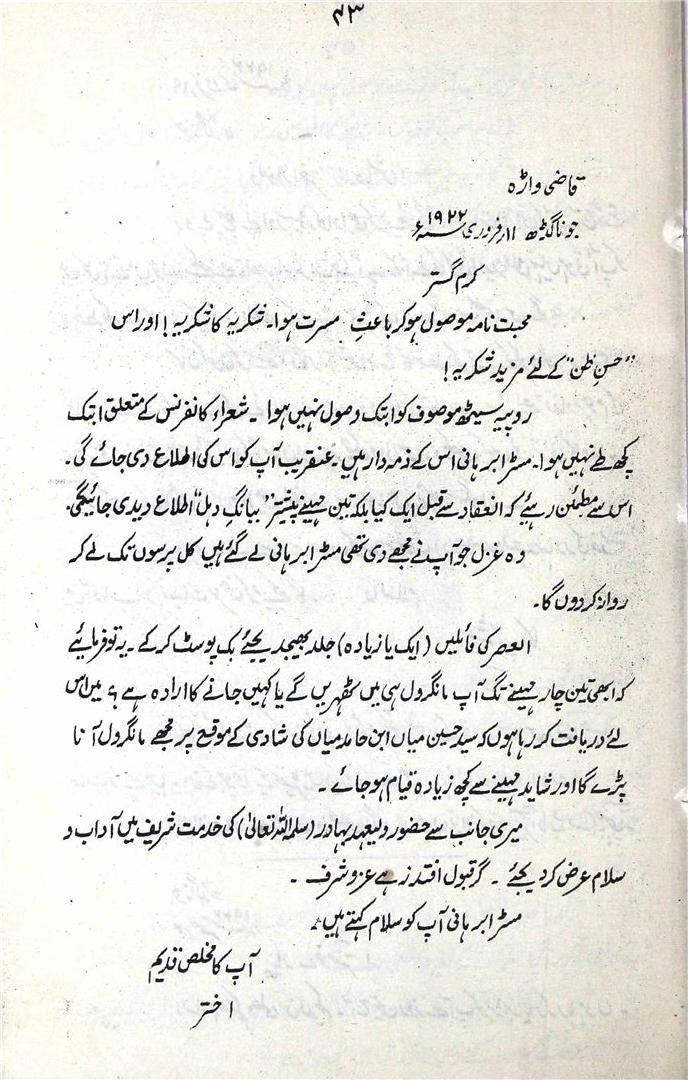 ۴۳
قاضی واڑہ
جوناگڑھ ۱۱ر فروری ۱۹۲۲ء
کرم گستر
محبت نامہ موصول ہو کر باعثِ مسرت ہوا۔ شکریہ کا شکریہ! اور اس
"حسنِ ظن" کے لئے مزید شکریہ!
روپیہ سیٹھ موصوف کو ابتک وصول نہیں ہوا۔ شعراء کانفرنس کے متعلق ابتک
کچھ طے نہیں ہوا۔ مسٹر ابرہانی اس کے ذمہ دار ہیں۔ عنقریب آپ کو اس کی اطلاع دی جائے گی۔
اس سے مطمئن رہئیے کہ انعقاد سے قبل ایک کیا بلکہ تین مہینے پیشتر "ببانگِ دہل" اطلاع دیدی جائیگی۔
وہ غزل جو آپ نے مجھے دی تھی مسٹر ابرہانی لے گئے ہیں کل پرسوں تک لے کر
روانہ کردوں گا۔
العصر کی فائلیں (ایک یا زیادہ) جلد بھیجدیجئے بک پوسٹ کر کے۔ یہ تو فرمائیے
کہ ابھی تین چار مہینے تگ آپ مانگرول ہی میں ٹھہریں گے یا کہیں جانے کا ارادہ ہے؟ میں اس
لئے دریافت کر رہا ہوں کہ سید حسین میاں ابن حامد میاں کی شادی کے موقع پر مجھے مانگرول آنا
پڑے گا اور شاید مہینے سے کچھ زیادہ قیام ہو جائے۔
میری جانب سے حضور ولیعہد بہادر (سلمہ اللہ تعالیٰ) کی خدمت شریف میں آداب و
سلام عرض کر دیجئے۔ گر قبول افتد زہے عز و شرف۔
مسٹر ابرہانی آپ کو سلام کہتے ہیں۔
آپ کا مخلص قدیم
اختر